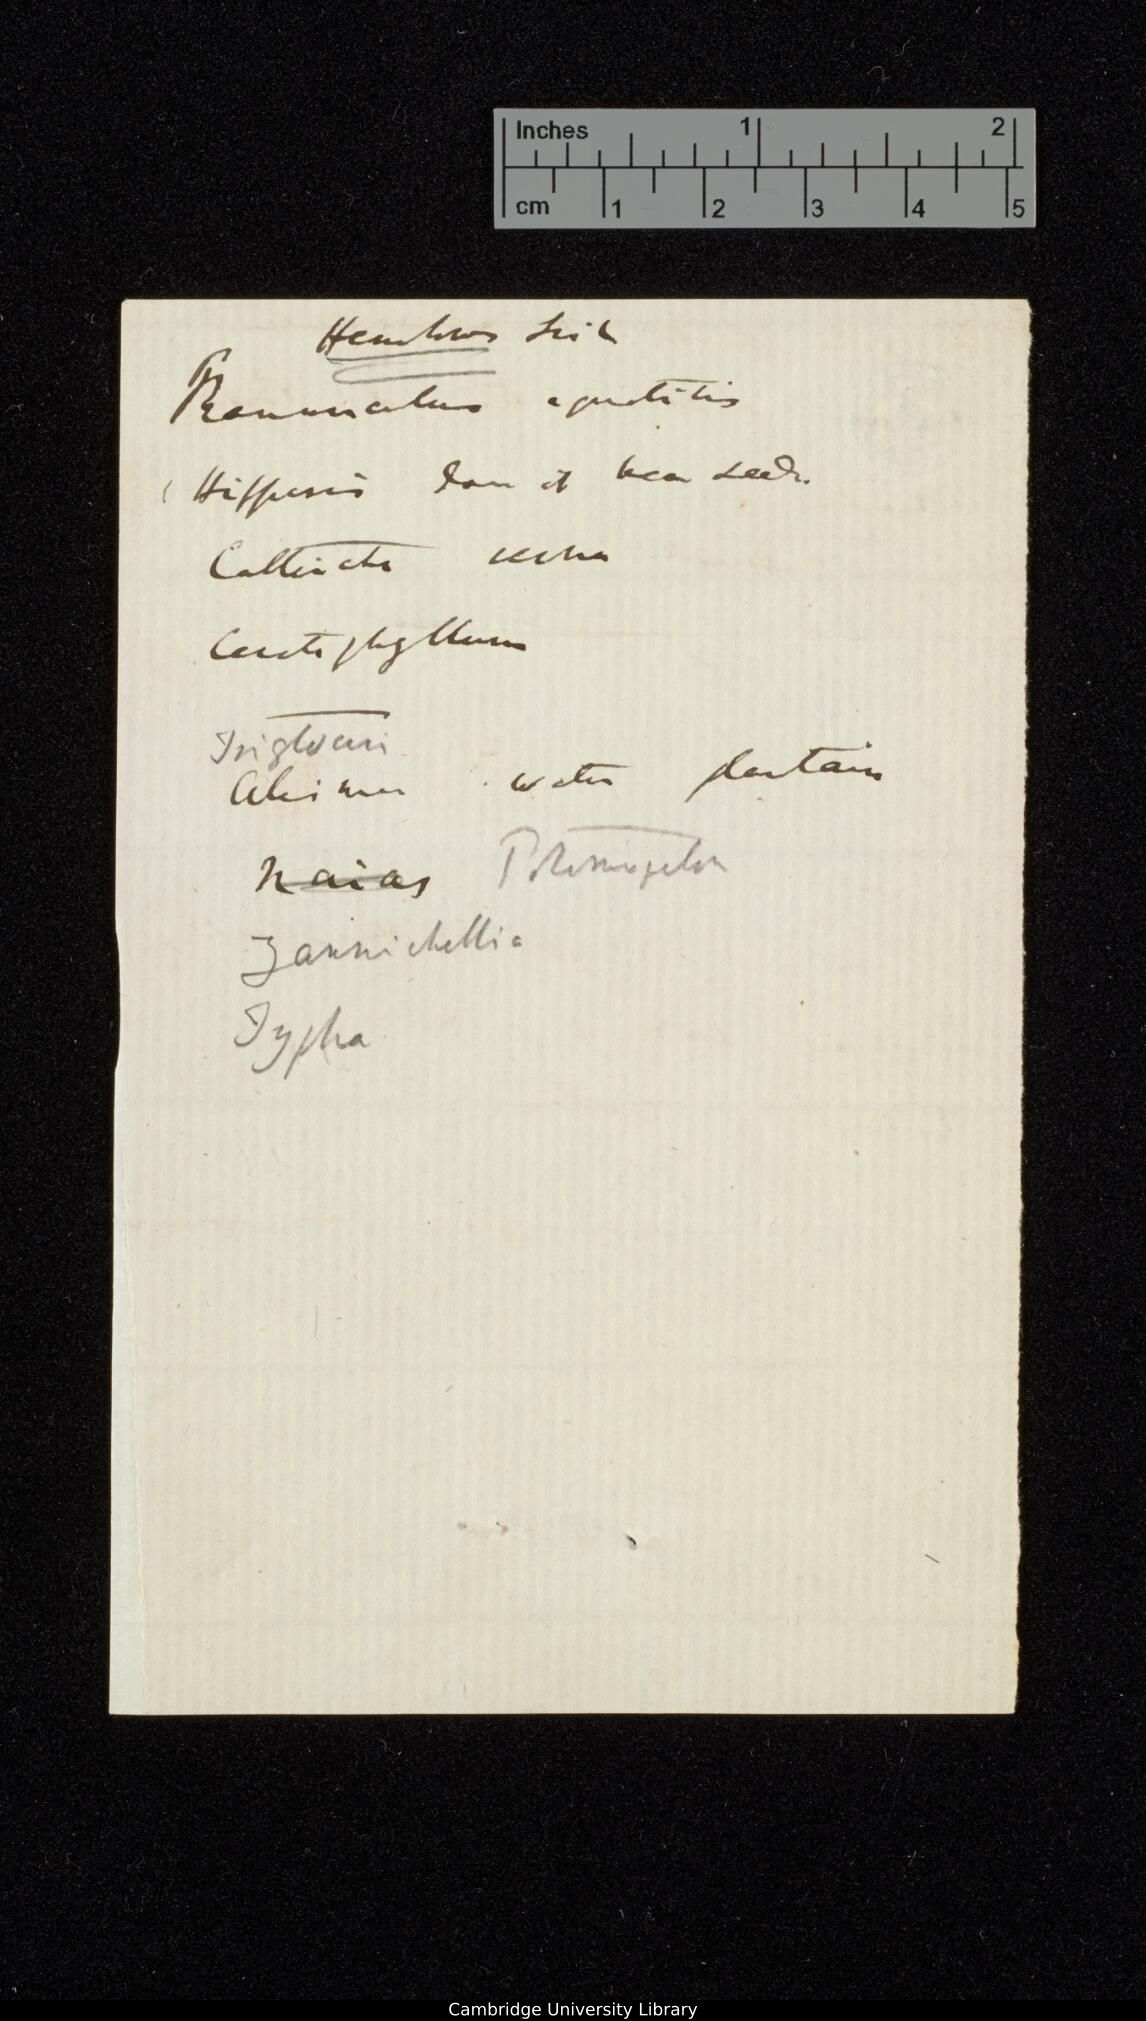 Inches 1 2
cm 1 2 3 4 5
Henslows list
Ranunculus aquatilis
Hippuris does it bear seeds.
Callitriche verna
Ceratophyllum
Triglochin
Alisma water plantain
Naias Potamogeton
Zannichellia
Typha
Cambridge University Library